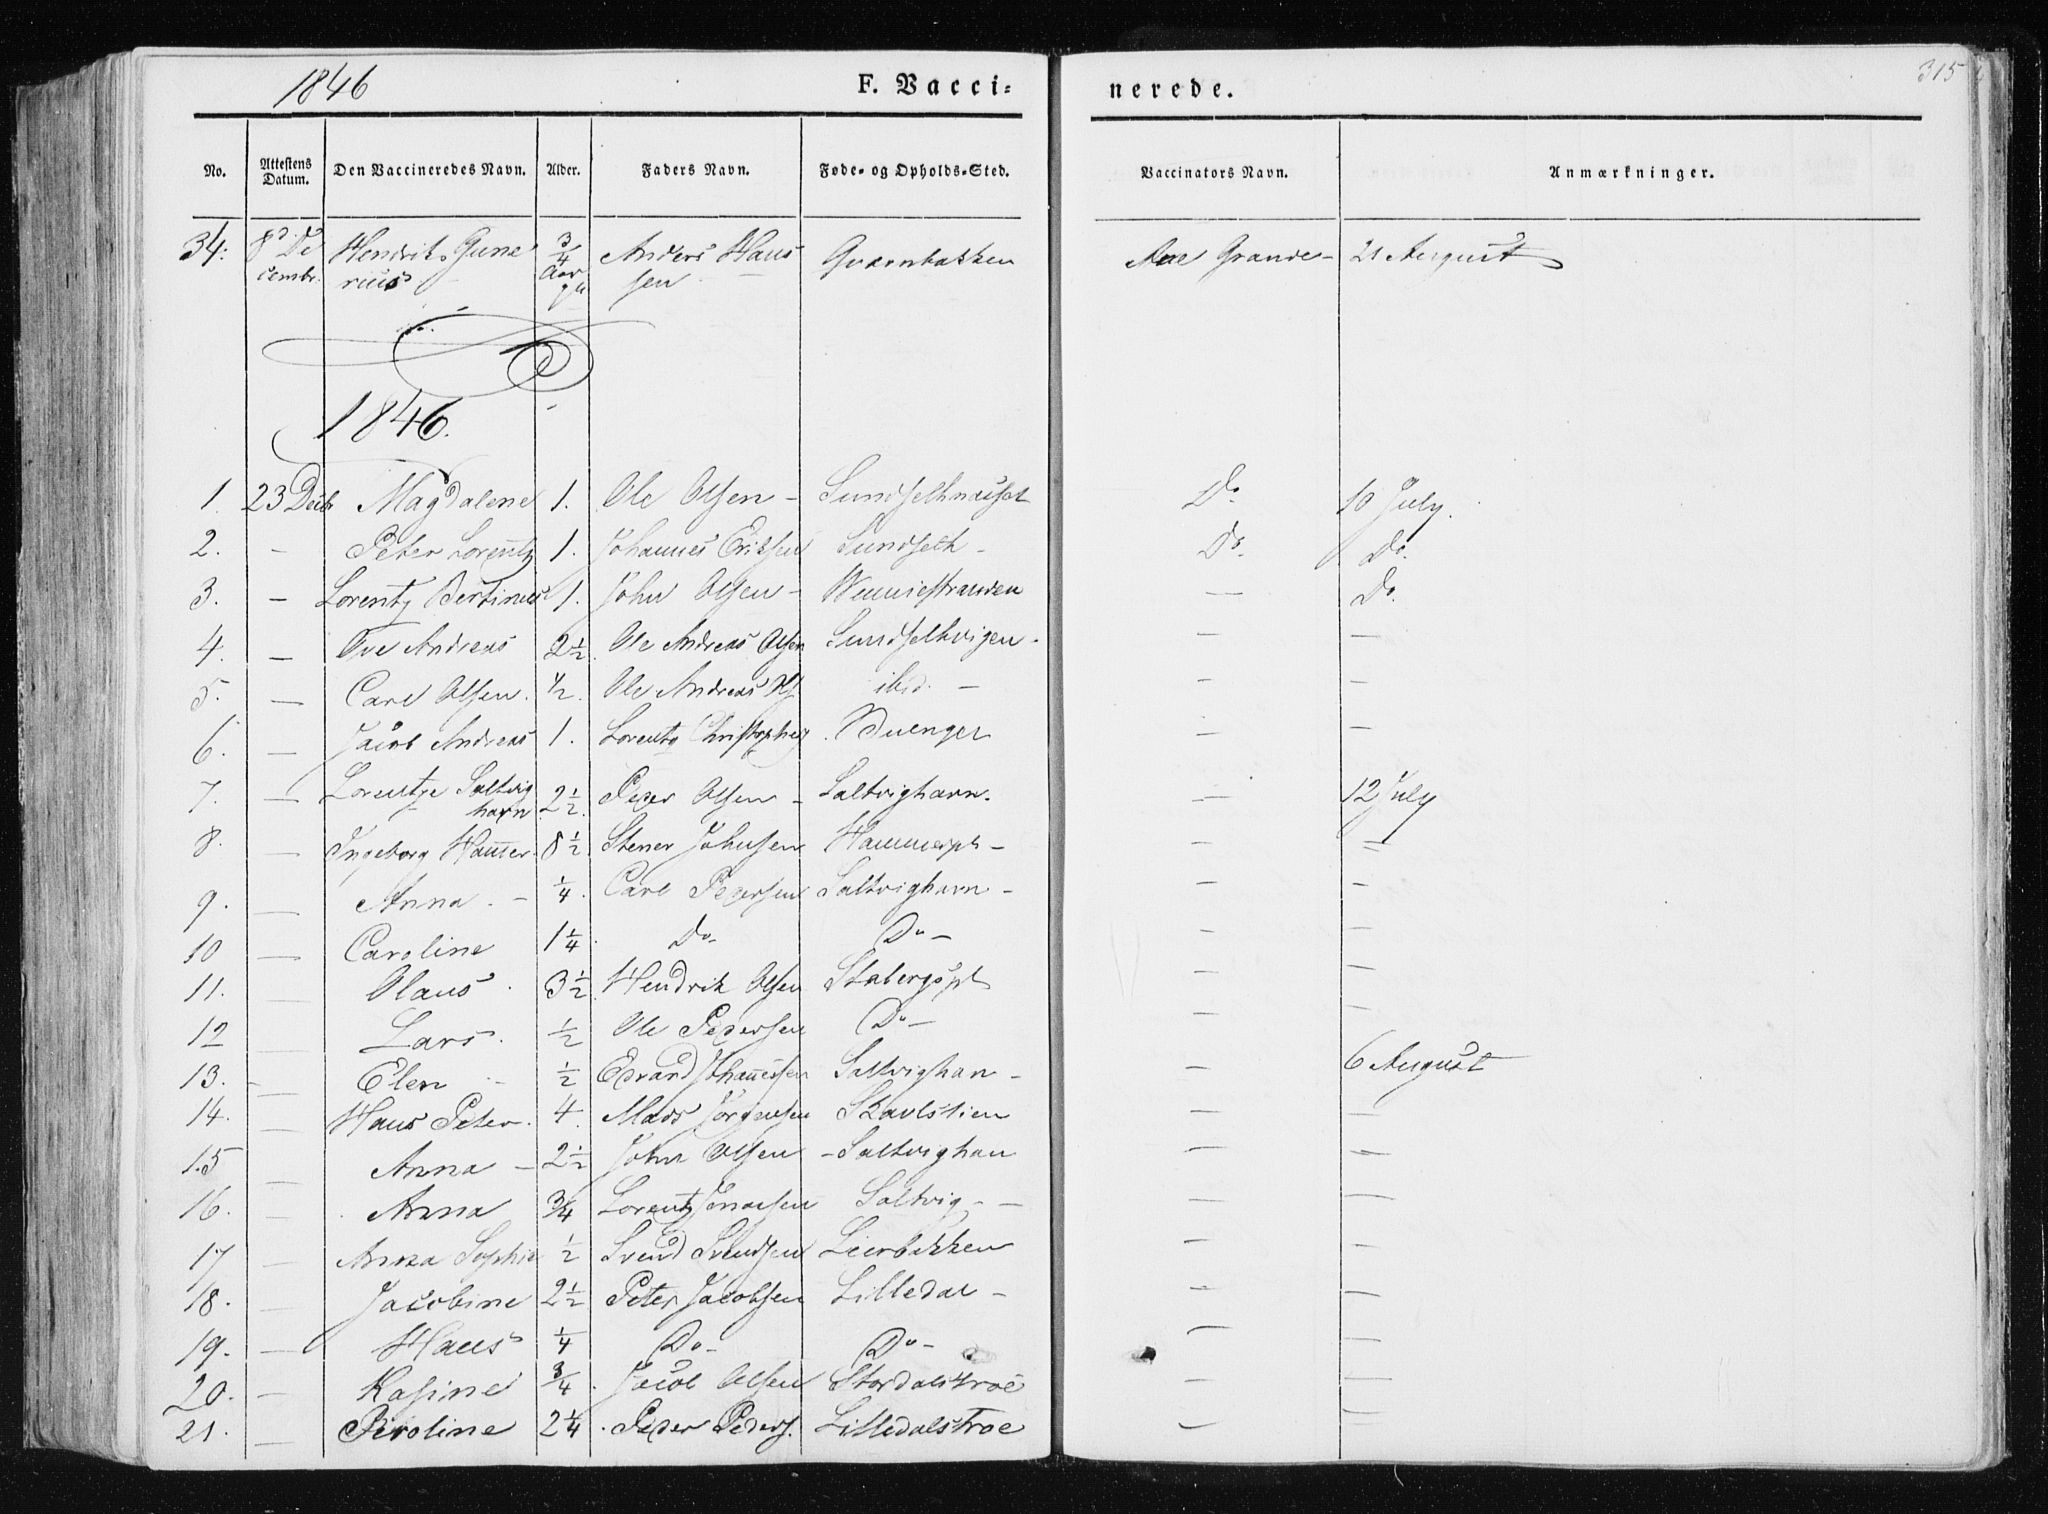 1846 F. Vacci= nerede. 315
No. Attestens Datum. Den Vaccineredes Navn. Alder. Faders Navn. Føde- og Opholds-Sted. Vaccinators Navn. Anmærkninger.
34. 8d. De Hendrik Gune 3/4 Anders Hans Qvarnbakken Grande - 21 August
cembr. rius Aar sen
1846.
1. 23 Decbr Magdalene 1. Ole Olsen - Sundselhnauset Do 10 July.
2. - Peter Lorentz 1. Johannes Eriksen Sundseth - Do. Do.
3. - Lorentz Bertinus 1. John Olsen - Wennestranden — Do.
4. - Ove Andreas 2 1/2. Ole Andreas Olsen Sundselhvigen - — —
5. - Carl Olsen. 1/2. Ole Andreas Ols ibid. - — —
6. - Jacob Andreas 1. Lorentz Christophers — —
7. - Lorentze Saltvig 2 1/2. Peder Olsen - Saltvighavn. — 12 July
havn
8. - Ingeborg 8 1/2. Stener Johnsen Hammerpl - — =
9. - Anna. - 1/4. Carl Pedersen Saltvighavn - — —
10 - Caroline 1 1/4. Do. Do - — —
11. - Olaus 3 1/2. Hendrik Olsen Stabergspl — —
12 - Lars. 1/2 Ole Pedersen Do - — —
13. - Elen - 1/2 Edvard Johannessen Saltvighan - — 6 August
14. - Hans Peter. 4. Mads Jørgensen Skavlstien — —
15 - Anna - 2 1/2 John Olsen - Saltvighan — —
16. - Anna 3/4 Lorentz Saltvig - — —
17 - Anna Sophie 1/2 Svend Svendsen Leerbakken — —
18. - Jacobine 2 1/2 Peter Jacobsen Lilledal - — —
19. - Hans 1/4 Do - Do - — —
20. - Kasine 3/4. Jacob Olsen Stordalstroe — —
21. - Peroline 2 1/4. Peder Peders. Lilledalstroe — —